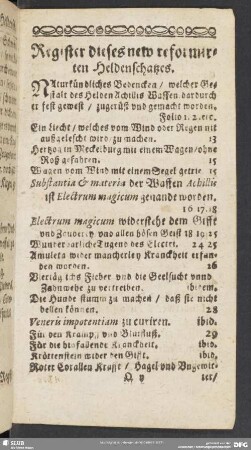 Register dieses new reformir-
ten Heldenschatzes.
Naturkündliches Bedencken / welcher Ge-
stalt des Helden Achillis Waffen dardurch
er fest gewest / zugerüst vnd gemacht worden.
Folio 1. 2. etc.
Ein Liecht / welches vom Wind oder Regen nit
außgelescht wird / zu machen. 13
Hertzog in Mecklburg mit einem Wagen / ohne
Roß gefahren. 15
Wagen vom Wind mit einem Segel getrie. 15
Substantia & materia der Waffen Achillis
ist Electrum magicum genandt worden.
16 17. 18
Electrum magicum widersteht dem Gifft
vnd Zauberey vnd allen bösen Geist 18 19 25
Wunderbarliche Tugend des Electri. 24 25
Amuleta wider mancherley Kranckheit erfun-
den worden. 26
Viertägichs Fieber vnd die Geelsucht vnnd
Zahnwehe zu vertreiben. ibidem.
Die Hunde stumm zu machen / daß sie nicht
bellen können. 28
Veneris impotentiam zu curiren. ibid.
Für den Krampff vnd Blutfluß. 29
Für die hinfallende Kranckheit. ibid.
Kröttenstein wider den Gifft. ibid.
Roter Corallen Krafft / Hagel vnd Vngewit-
O v ter /
SLUB